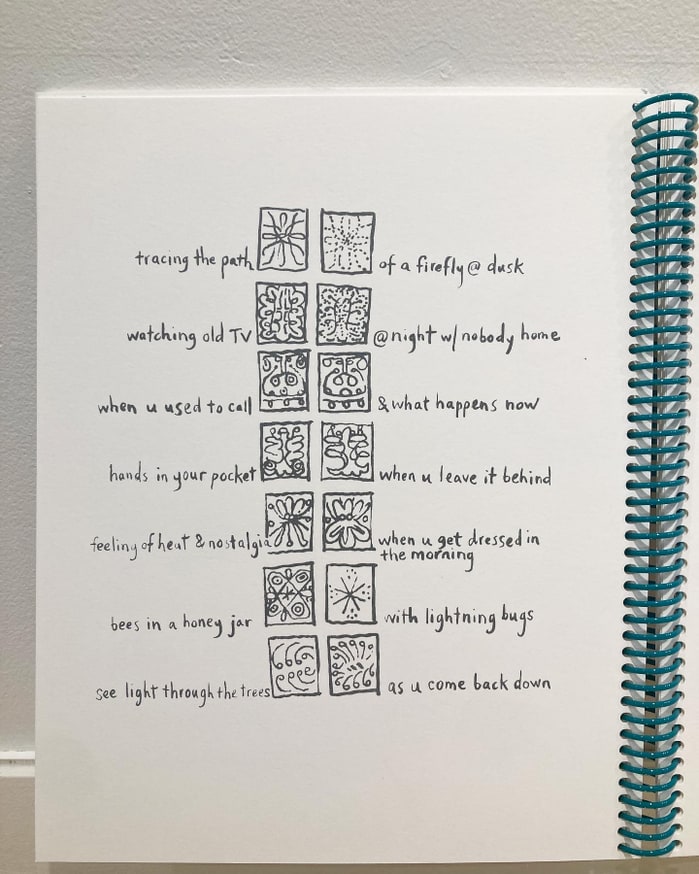 tracing the path of a firefly @ dusk
watching old TV @ night w/ nobody home
when u used to call & what happens now
hands in your pocket when u leave it behind
feeling of heat & nostalgia when u get dressed in
the morning
bees in a honey jar with lightning bugs
see light through the trees as u come back down